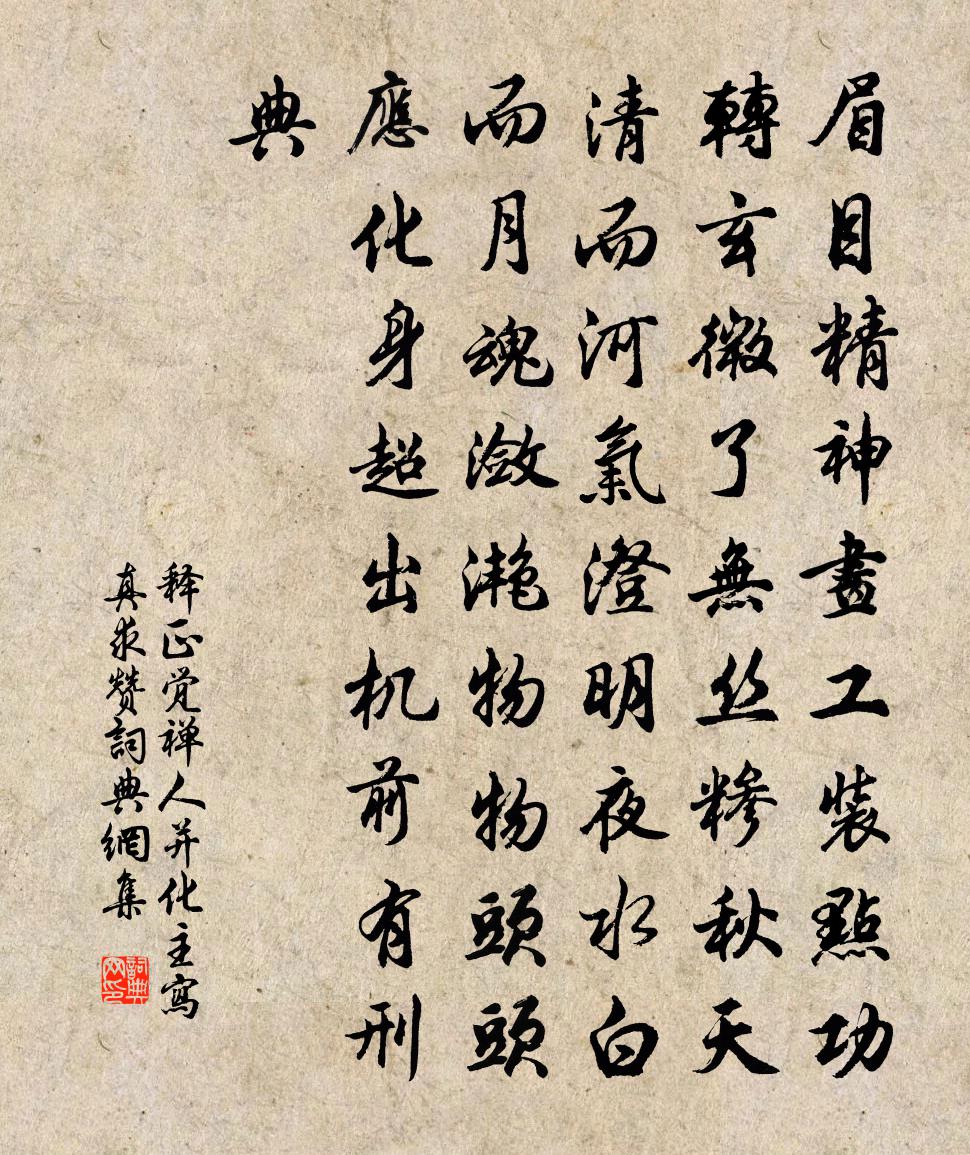 眉目精神畫工裝點功
轉玄微了無丝糝秋天
清而河氣澄明夜水白
而月魂潋滟物物頭頭
應化身超出机前有刑
典
释正觉禅人并化主寫
真求赞詞典網集
詞典网印